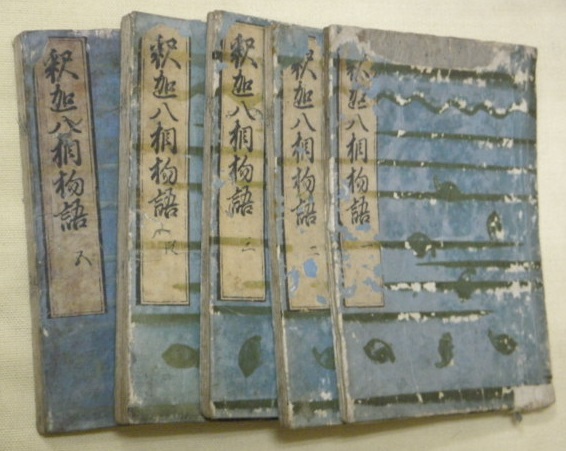 釈迦八相物語 五
釈迦八相物語
釈迦八相物語 三
釈迦八相物語 二
釈迦八相物語